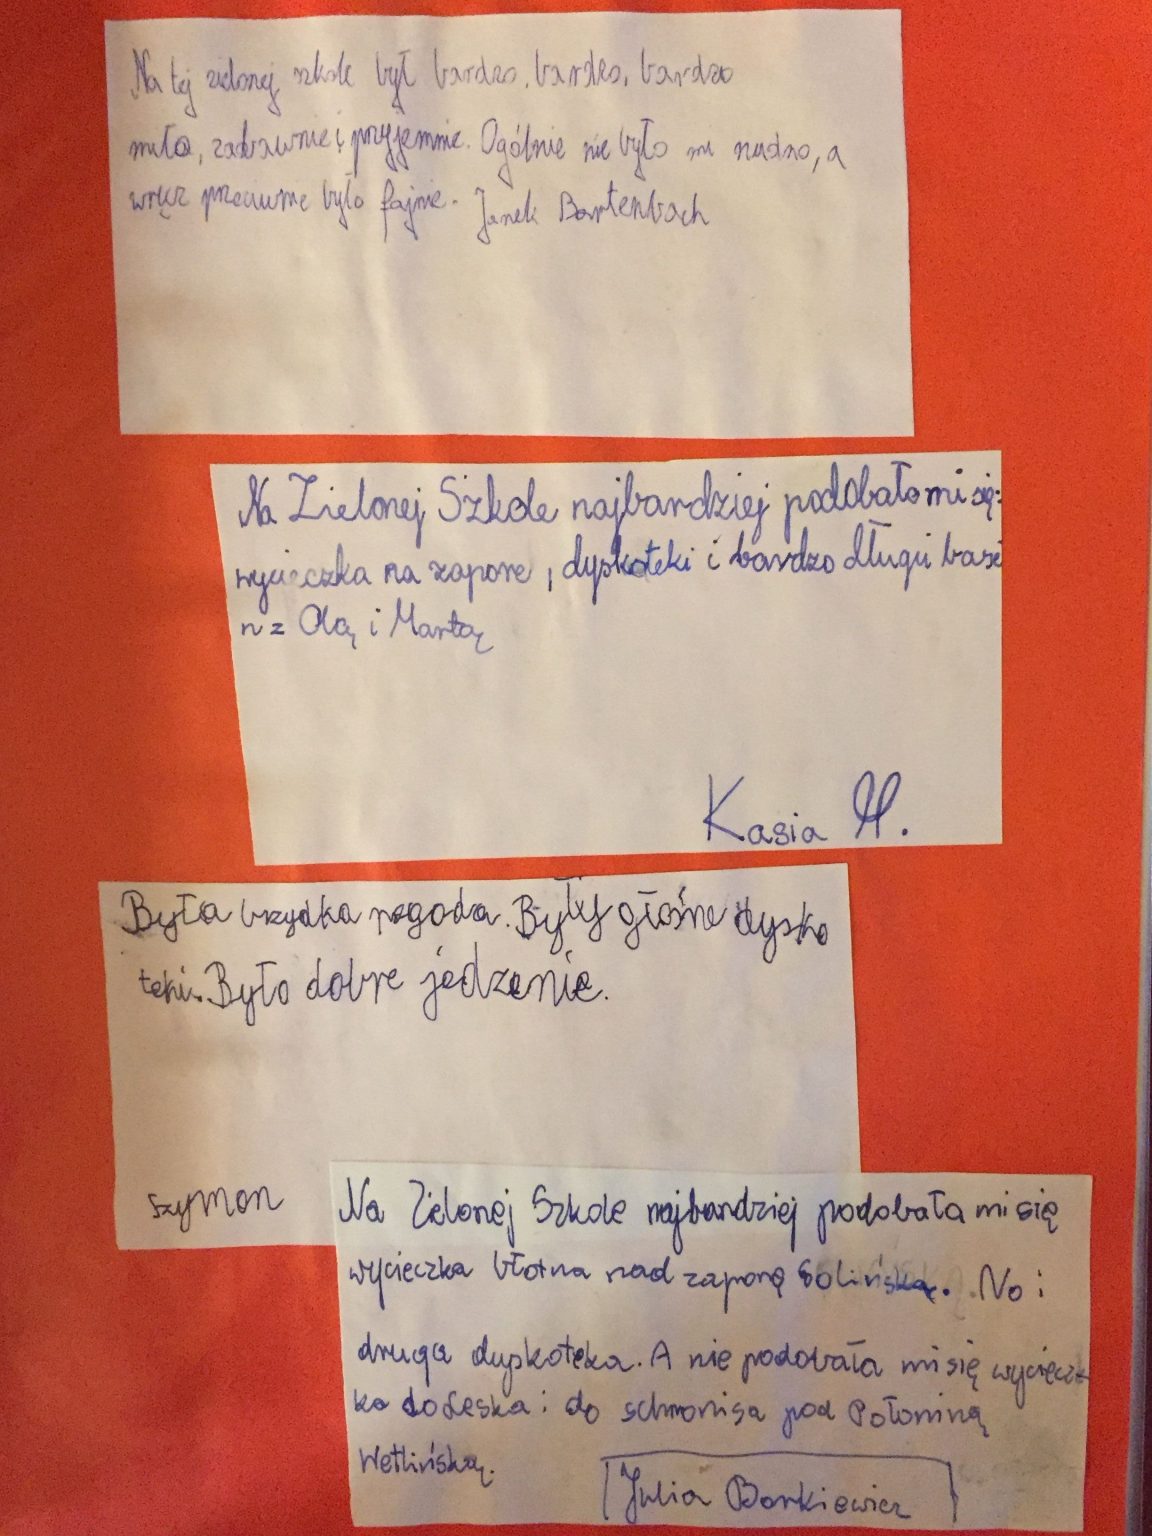 Na tej zielonej szkole był bardzo, bardzo, bardzo
miło, zabawnie i przyjemnie. Ogólnie nie było mi nudno, a
wręcz przeciwnie było fajnie. Janek Bartenbach
Na Zielonej Szkole najbardziej podobało mi się:
wycieczka na zapore, dyskoteki i bardzo długi base
n z Olą i Martą
Kasia M.
Była brzydka pogoda. Były głośne dysko
teki. Było dobre jedzenie.
Szymon
Na Zielonej Szkole najbardziej podobała mi się
wycieczka błotna nad zaporę Solińską. No i
druga dyskoteka. A nie podobała mi się wycięcz
ka do Leska i do schronisa pod Połoniną
Wetlińską.
Julia Borkiewicz